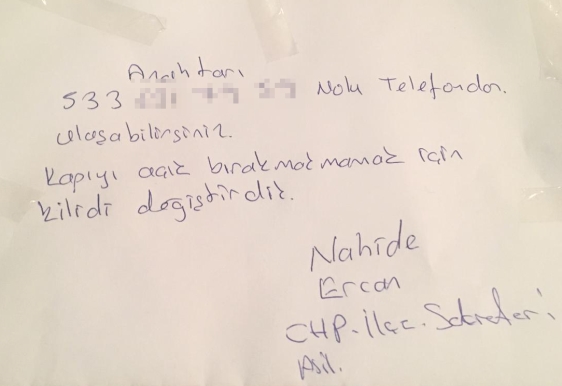 Anahtarı
533 Nolu Telefondan.
ulaşabilirsiniz.
Kapıyı açık bırakmamak için
kilidi değiştirdik.
Nahide
Ercan
CHP. İlçe. Sekreteri
Asil.